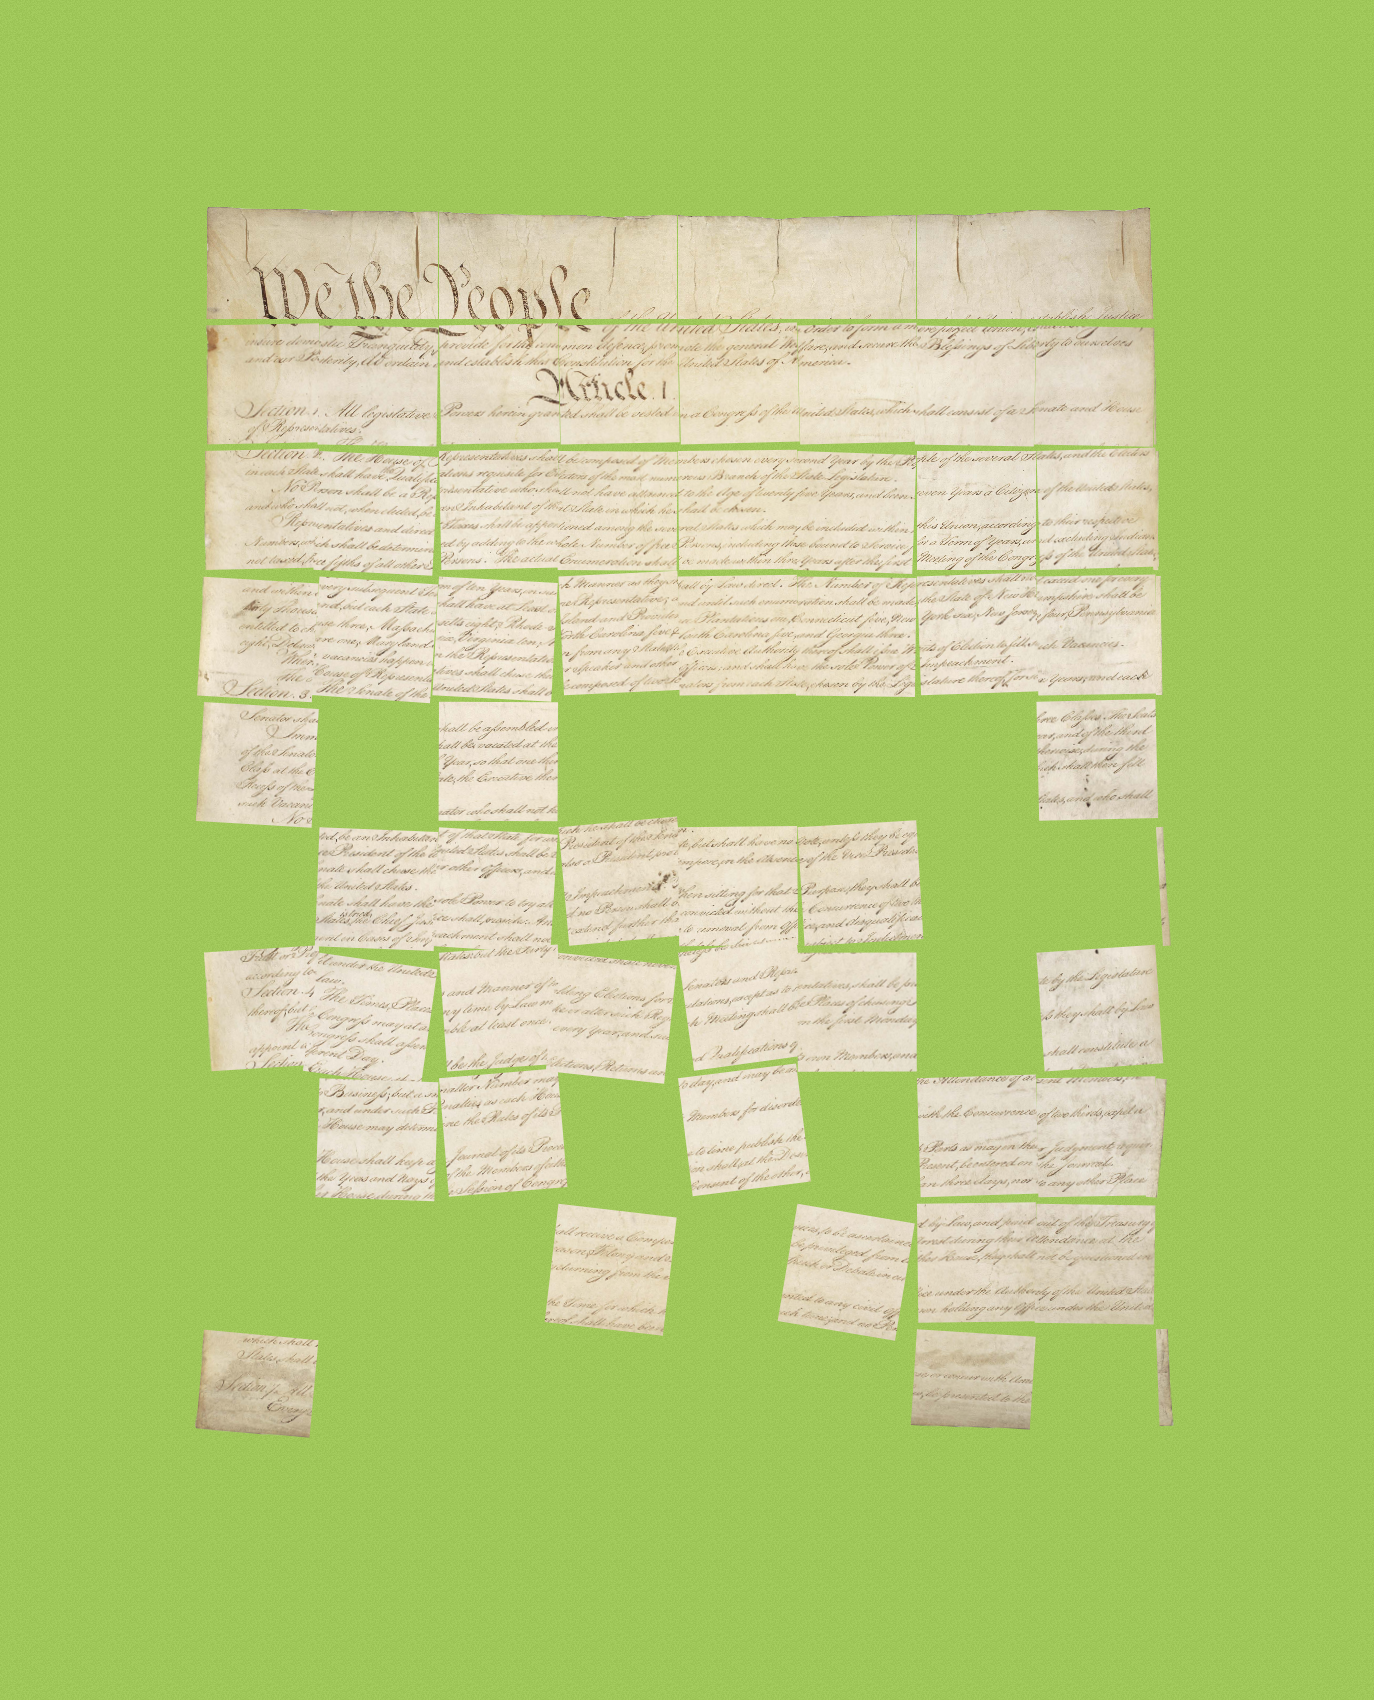 We the People
of the United States, in order to form a more perfect Union, establish Justice,
insure domestic Tranquility, provide for the common defence, promote the general Welfare, and secure the Blessings of Liberty to ourselves
and our Posterity, do ordain and establish this Constitution for the United States of America.
Article. I.
Section. 1. All legislative Powers herein granted shall be vested in a Congress of the United States, which shall consist of a Senate and House
of Representatives.
Section. 2. The House of Representatives shall be composed of Members chosen every second Year by the People of the several States, and the Electors
in each State shall have the Qualifications requisite for Electors of the most numerous Branch of the State Legislature.
No Person shall be a Representative who shall not have attained to the Age of twenty five Years, and been seven Years a Citizen of the United States,
and who shall not, when elected, be an Inhabitant of that State in which he shall be chosen.
Representatives and direct Taxes shall be apportioned among the several States which may be included within this Union, according to their respective
Numbers, which shall be determined by adding to the whole Number of free Persons, including those bound to Service for a Term of Years, and excluding Indians
not taxed, three fifths of all other Persons. The actual Enumeration shall be made within three Years after the first Meeting of the Congress of the United States,
and within every subsequent Term of ten Years, in such Manner as they shall by Law direct. The Number of Representatives shall not exceed one for every
thirty Thousand, but each State shall have at Least one Representative; and until such enumeration shall be made, the State of New Hampshire shall be
entitled to chuse three, Massachusetts eight, Rhode Island and Providence Plantations one, Connecticut five, New York six, New Jersey four, Pennsylvania
eight, Delaware one, Maryland six, Virginia ten, North Carolina five, South Carolina five, and Georgia three.
When vacancies happen in the Representation from any State, the Executive Authority thereof shall issue Writs of Election to fill such Vacancies.
The House of Representatives shall chuse their Speaker and other Officers; and shall have the sole Power of Impeachment.
Section. 3. The Senate of the United States shall be composed of two Senators from each State, chosen by the Legislature thereof, for six Years; and each
Senator shall
Imm shall be assembled in three Classes. The Seats
of the Senate shall be vacated at the Year, and of the third
Class at the Year, so that one third otherwise, during the
Recess of the State, the Executive there which shall then fill
such Vacanc
No Senator who shall not h States, and who shall
ted, be an Inhabitant of that State for wh ich he shall be chosen.
President of the United States shall be President of the Senate, but shall have no Vote, unless they be eq
Senate shall chuse their other Officers, and also a President pro tempore, in the Absence of the Vice President
the United States.
Senate shall have the sole Power to try all Impeachments. When sitting for that Purpose, they shall be
States, the Chief Justice shall preside: And no Person shall be convicted without the Concurrence of two th
ment in Cases of Impeachment shall not extend further than to removal from Office, and disqualification
Trust or Profit under the United States: but the Party convicted shall never
according to Law.
Section. 4. The Times, Places and Manner of holding Elections for Senators and Representatives, shall be pre by the Legislature
thereof; but the Congress may at any time by Law make or alter such Reg ulations, except as to the Places of chusing
The Congress shall assemble at least once in every Year, and such Meeting shall be on the first Monday s they shall by Law
appoint a different Day.
Section. Each House shall be the Judge of the Elections, Returns and Qualifications of its own Members, and shall constitute a
Business; but a smaller Number may day, and may be au the Attendance of absent Members, in
r, and under such Penalties as each House
House may determine the Rules of its P Members for disorder with the Concurrence of two thirds, expel a
House shall keep a Journal of its Procee to time publish the Parts as may in their Judgment require
the Yeas and Nays of the Members of eith on shall, at the Desire Present, be entered on the Journal.
House, during the Session of Congress Consent of the other, an three days, nor to any other Place
shall receive a Compen vices, to be ascertained by Law, and paid out of the Treasury of
Treason, Felony and be privileged from Arrest during their Attendance at the
returning from the s Speech or Debate in either House, they shall not be questioned in
the Time for which he ointed to any civil Office under the Authority of the United States
thereof shall have been such time; and no Person holding any Office under the United
which shall
States, shall
Section. 7. All
Every
concur with Amen
be presented to the